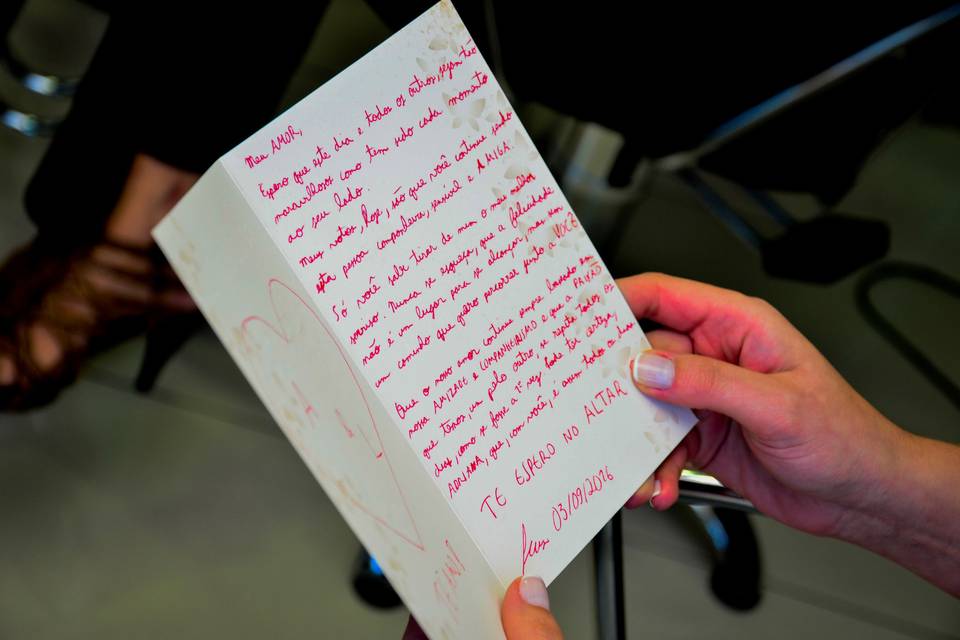 Meu AMOR,
Espero que este dia e todos os outros, sejam tão
maravilhosos como tem sido cada momento
ao seu lado.
Meus votos, Rose, são que você continue sendo
esta pessoa companheira, sensível e AMIGA.
Só você sabe tirar de mim o meu melhor
sorriso. Nunca se esqueça, que a felicidade
não é um lugar para se alcançar, mas sim
um caminho que quero percorrer junto a VOCÊ
Que o nosso amor continue sempre baseado em
nossa AMIZADE e COMPANHEIRISMO e que a PAIXÃO
que temos, um pelo outro, se repita todos os
dias, como se fosse a 1ª vez. Pode ter certeza,
ADRIANA, que, com você, é assim todos os dias
TE ESPERO NO ALTAR
03/09/2016
A
&
L
TE AMO!